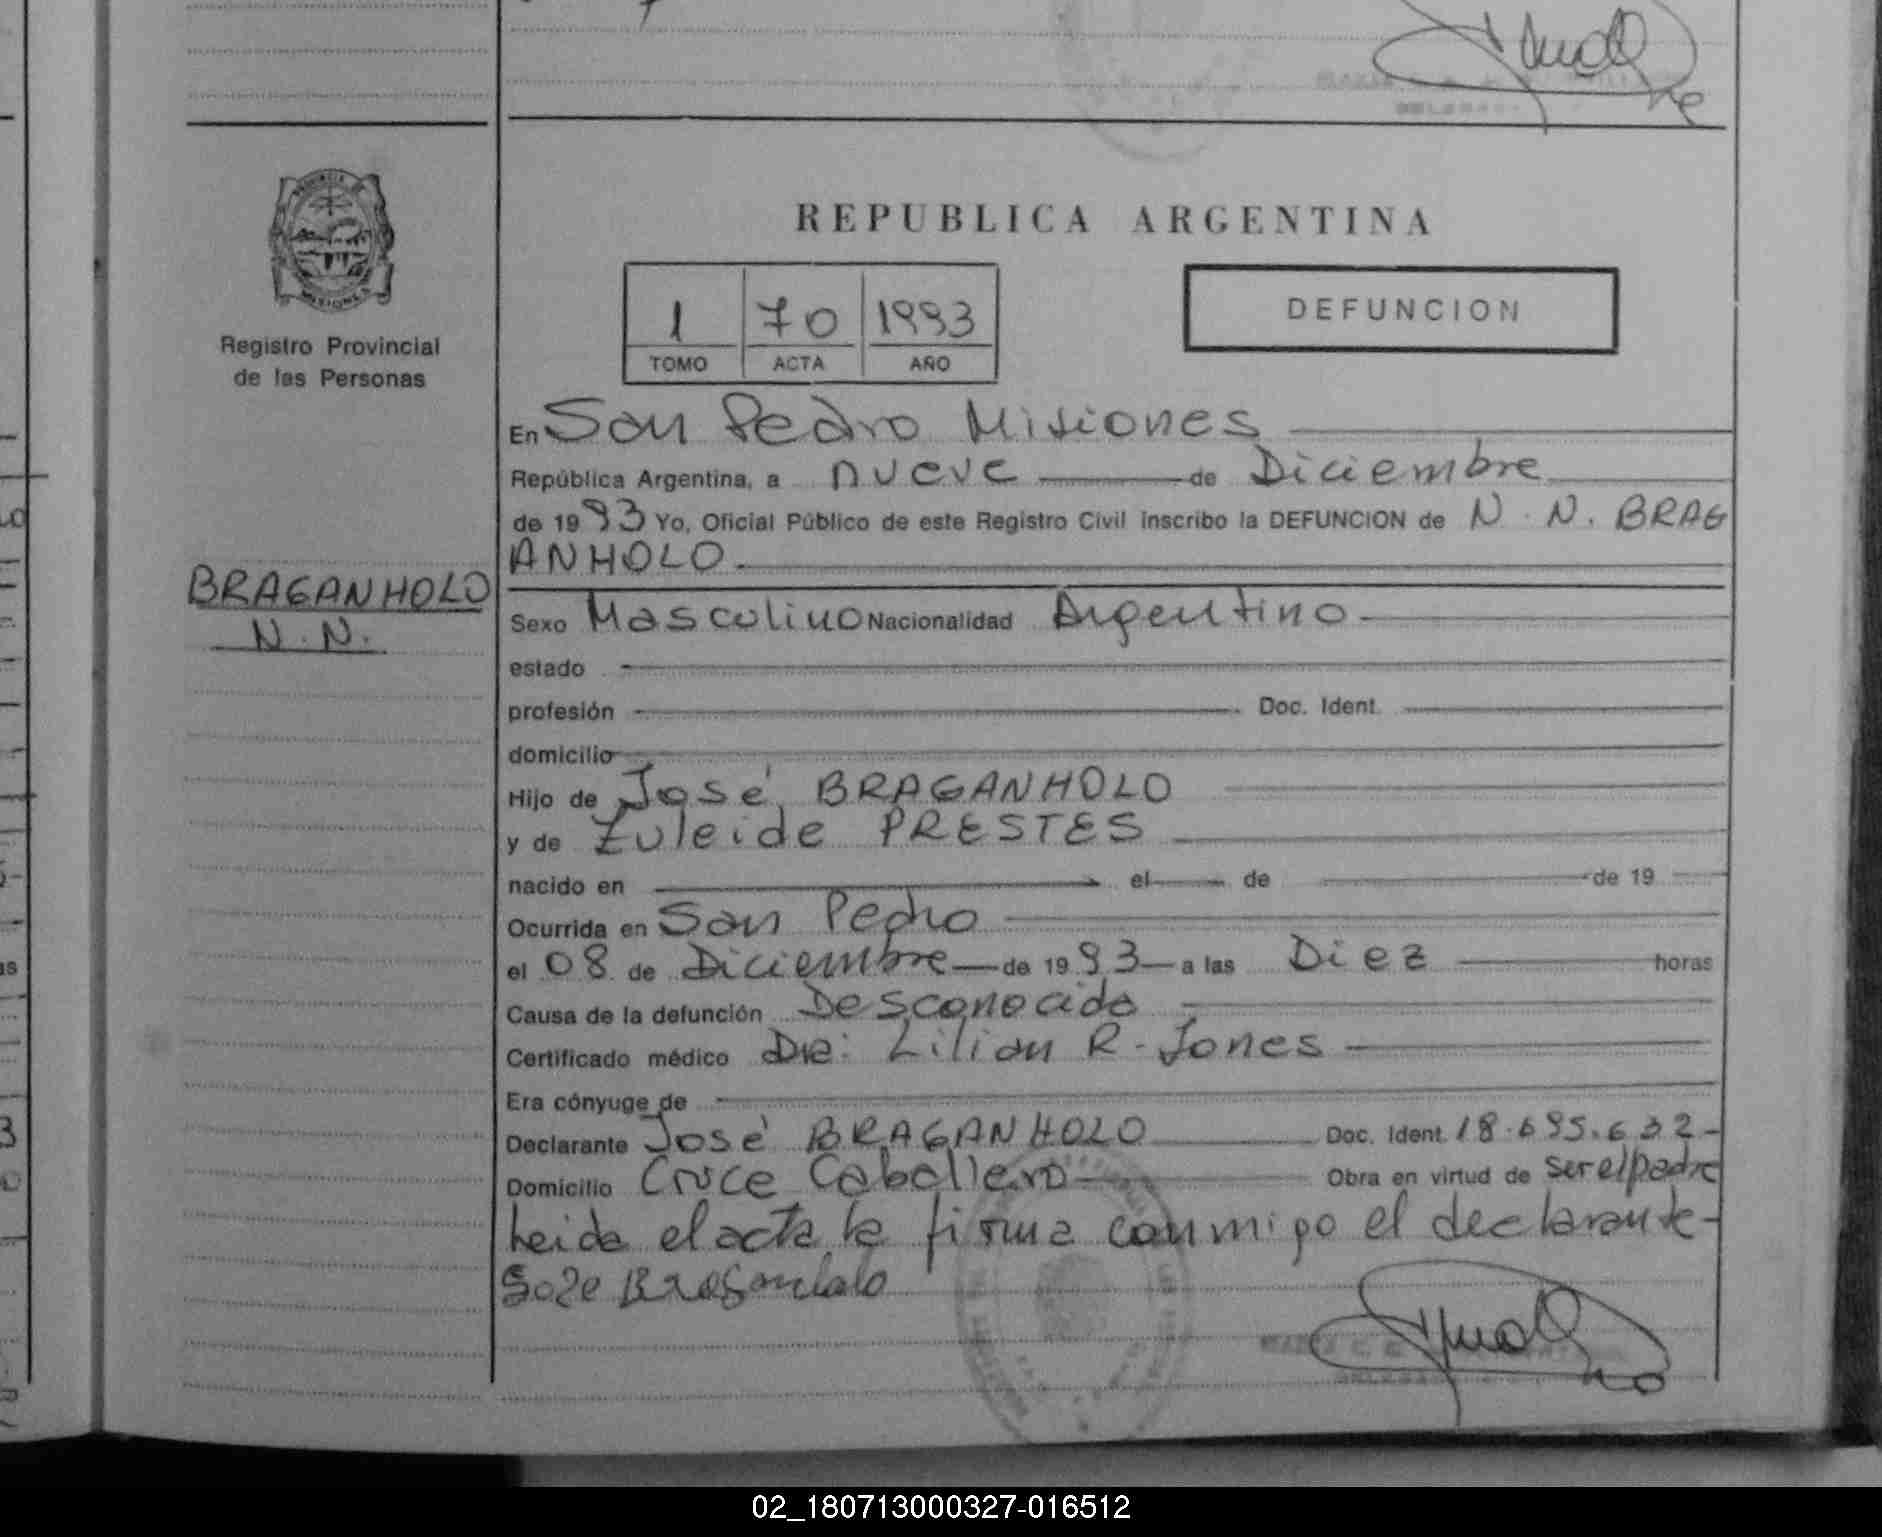 REPUBLICA ARGENTINA
PROVINCIA DE
MISIONES
Registro Provincial
de las Personas
1 70 1993
TOMO ACTA AÑO
DEFUNCION
En San Pedro Misiones
República Argentina, a nueve de Diciembre
de 1993 Yo, Oficial Público de este Registro Civil inscribo la DEFUNCION de N. N. BRAG
ANHOLO
BRAGANHOLO
N. N.
Sexo Masculino Nacionalidad Argentino
estado
profesión Doc. Ident.
domicilio
Hijo de José BRAGANHOLO
y de Zuleide PRESTES
nacido en el de de 19
Ocurrida en San Pedro
el 08 de Diciembre de 1993 a las Diez horas
Causa de la defunción Desconocida
Certificado médico Dra: Lilian R. Jones
Era cónyuge de
Declarante José BRAGANHOLO Doc. Ident. 18.695.632
Domicilio Cruce Caballero Obra en virtud de ser el padre
Leida el acta la firma conmigo el declarante
Jose Braganholo
02_180713000327-016512